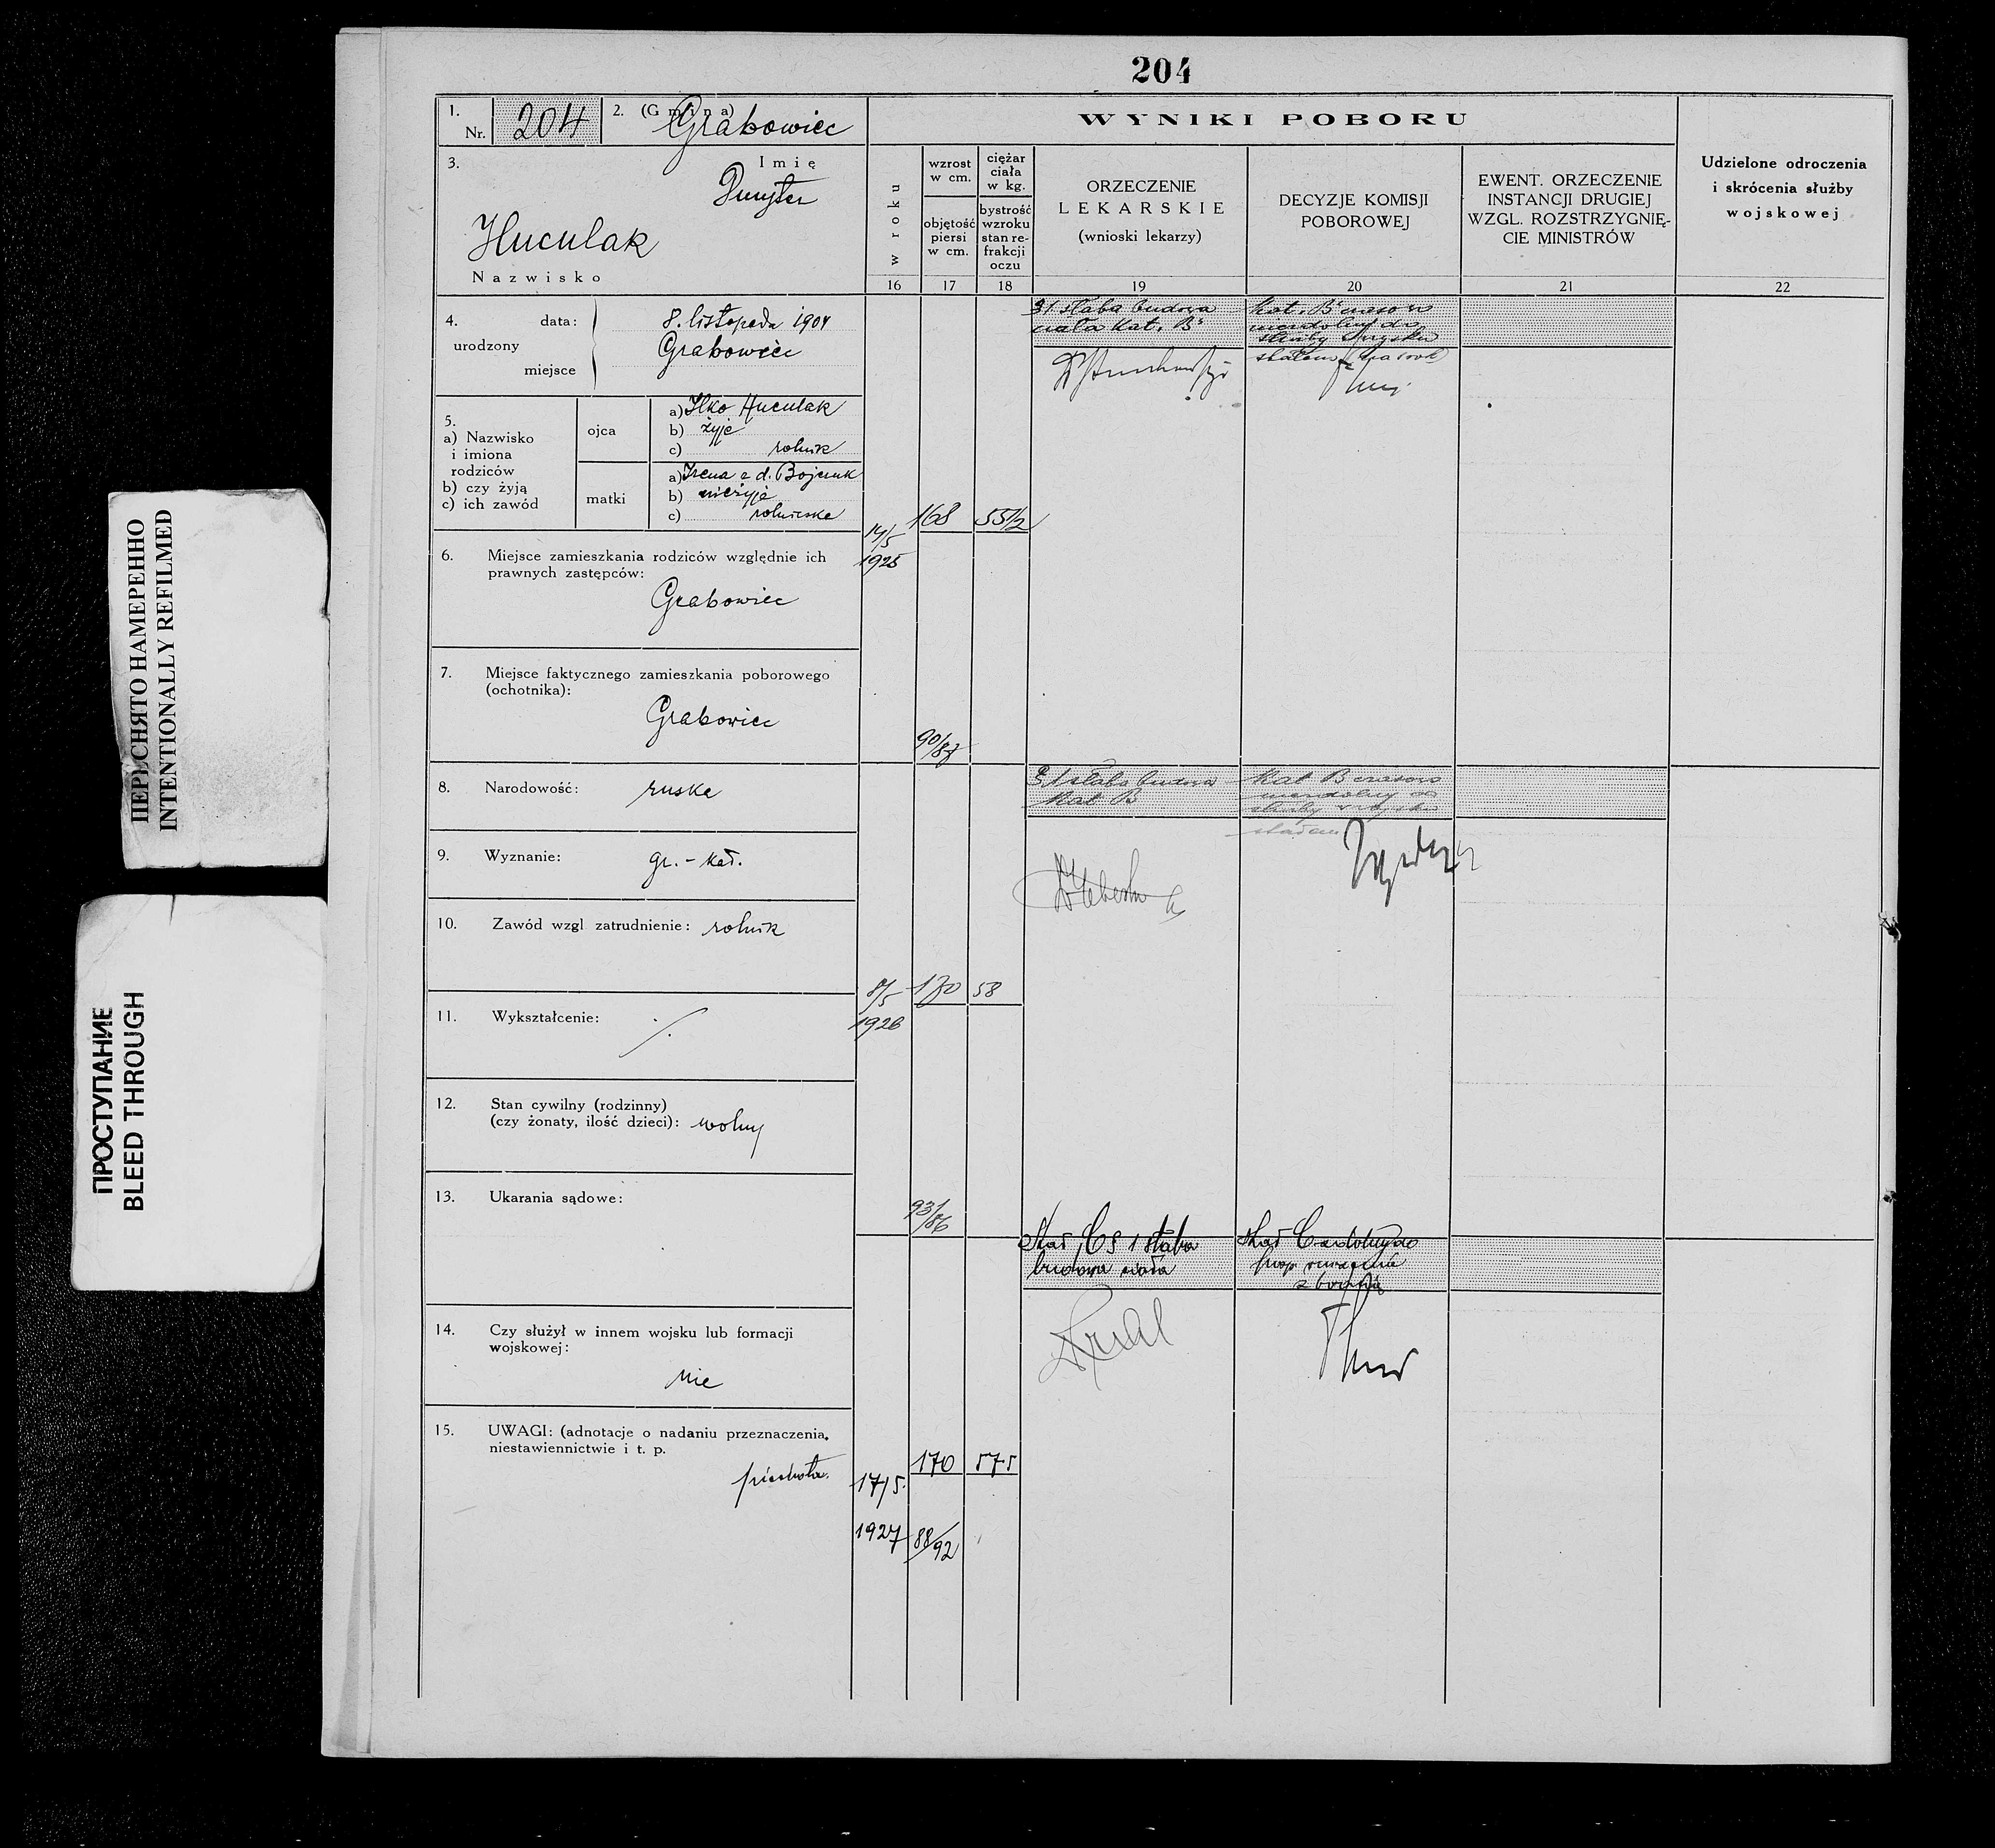 204
1. Nr. 204
2. (Gmina) Grabowiec
3. Imię
Dmyter
Huculak
Nazwisko
4. urodzony
data: 8. listopada 1904
miejsce Grabowiec
5.
a) Nazwisko i imiona rodziców
b) czy żyją
c) ich zawód
ojca
a) Ilko Huculak
b) żyje
c) rolnik
matki
a) Irena z d. Bojczuk
b) nieżyje
c) rolniczka
6. Miejsce zamieszkania rodziców względnie ich
prawnych zastępców:
Grabowiec
7. Miejsce faktycznego zamieszkania poborowego
(ochotnika):
Grabowiec
8. Narodowość: ruska
9. Wyznanie: gr.-kat.
10. Zawód wzgl zatrudnienie: rolnik
11. Wykształcenie: ./.
12. Stan cywilny (rodzinny)
(czy żonaty, ilość dzieci): wolny
13. Ukarania sądowe:
14. Czy służył w innem wojsku lub formacji
wojskowej:
nie
15. UWAGI: (adnotacje o nadaniu przeznaczenia,
niestawiennictwie i t. p.
piechota.
WYNIKI POBORU
w roku
16
wzrost
w cm.
objętość
piersi
w cm.
17
ciężar
ciała
w kg.
bystrość
wzroku
stan re-
frakcji
oczu
18
ORZECZENIE
LEKARSKIE
(wnioski lekarzy)
19
DECYZJE KOMISJI
POBOROWEJ
20
EWENT. ORZECZENIE
INSTANCJI DRUGIEJ
WZGL. ROZSTRZYGNIĘ-
CIE MINISTRÓW
21
Udzielone odroczenia
i skrócenia służby
wojskowej
22
14/5
1925
168
55 1/2
90/87
słaba budowa
ciała Kat. B
Kat. B czasowo
niezdolny do
służby w wojsku
stałem
8/5
1926
170
58
93/86
słaba budowa
Kat B
Kat B czasowo
niezdolny do
służby w wojsku
stałem
17/5.
1927
170
575
88/92
Kat C słaba
budowa ciała
Kat C zdolny do
posp ruszenia
z bronią
ПЕРЕСНЯТО НАМЕРЕННО
INTENTIONALLY REFILMED
ПРОСТУПАНИЕ
BLEED THROUGH